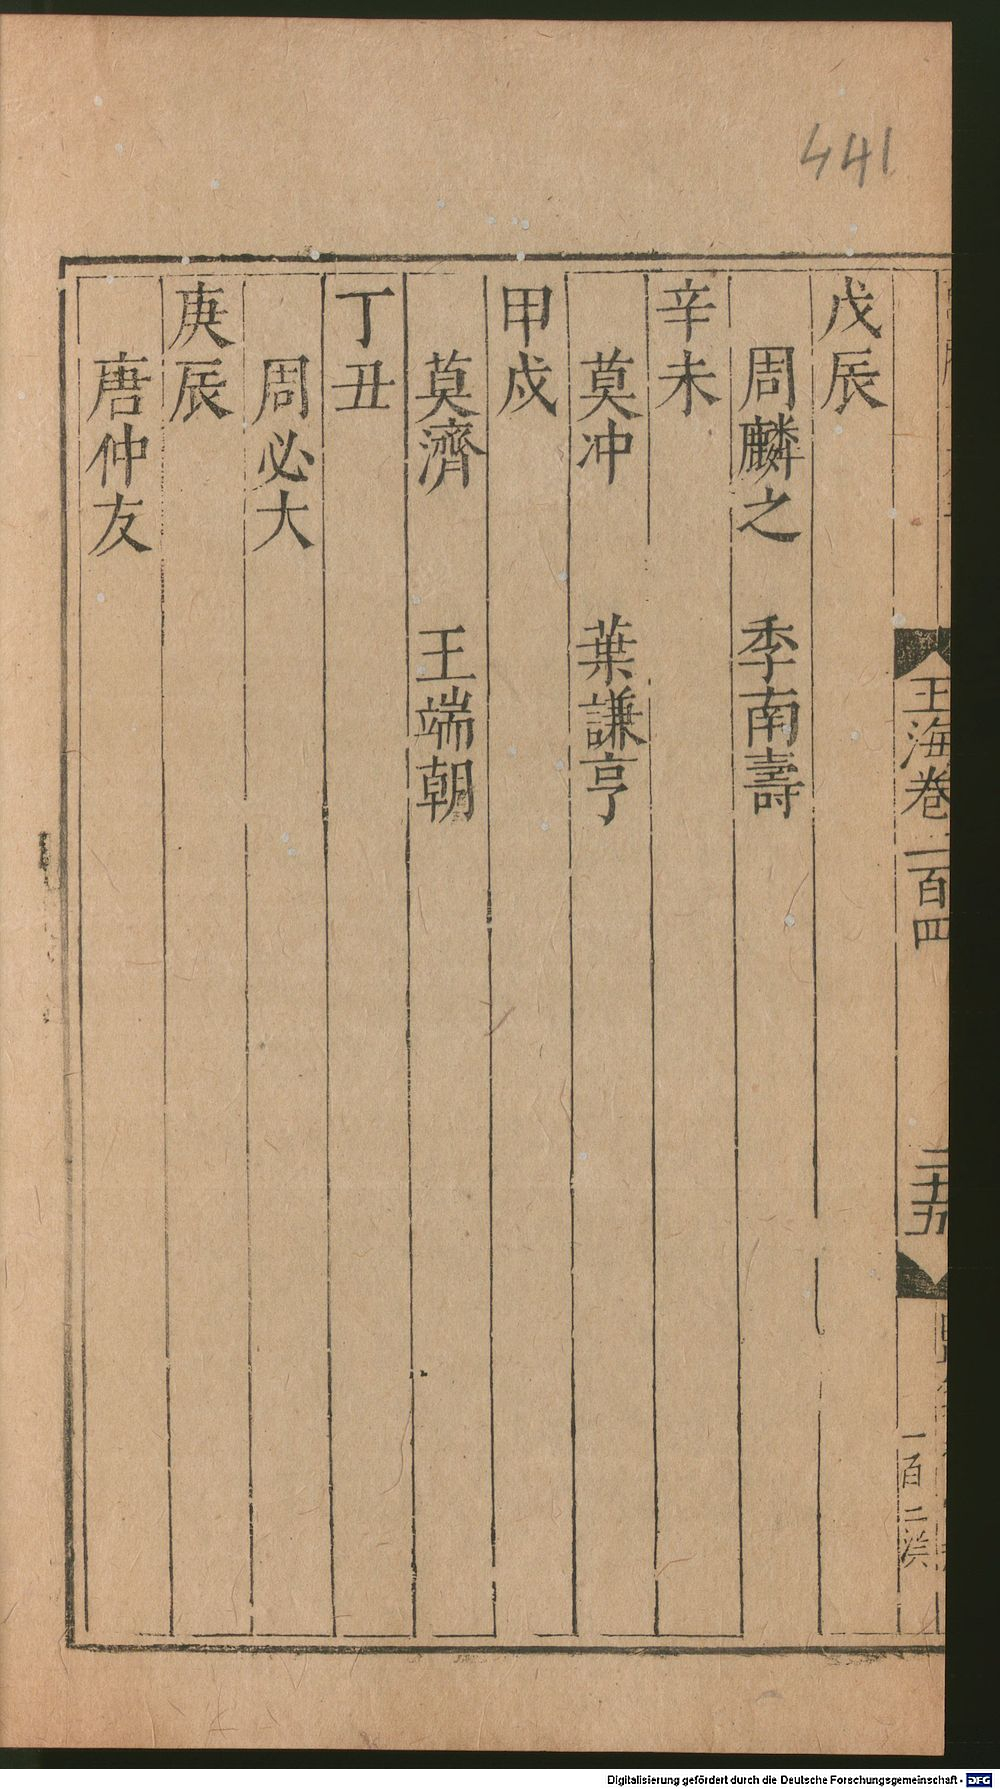 441
戊辰
周麟之 季南壽
辛未
莫冲 葉謙亨
甲戍
莫濟 王端朝
丁丑
周必大
庚辰
唐仲友
玉海卷二百四
二十五
一百二
Digitalisierung gefördert durch die Deutsche Forschungsgemeinschaft - DFG